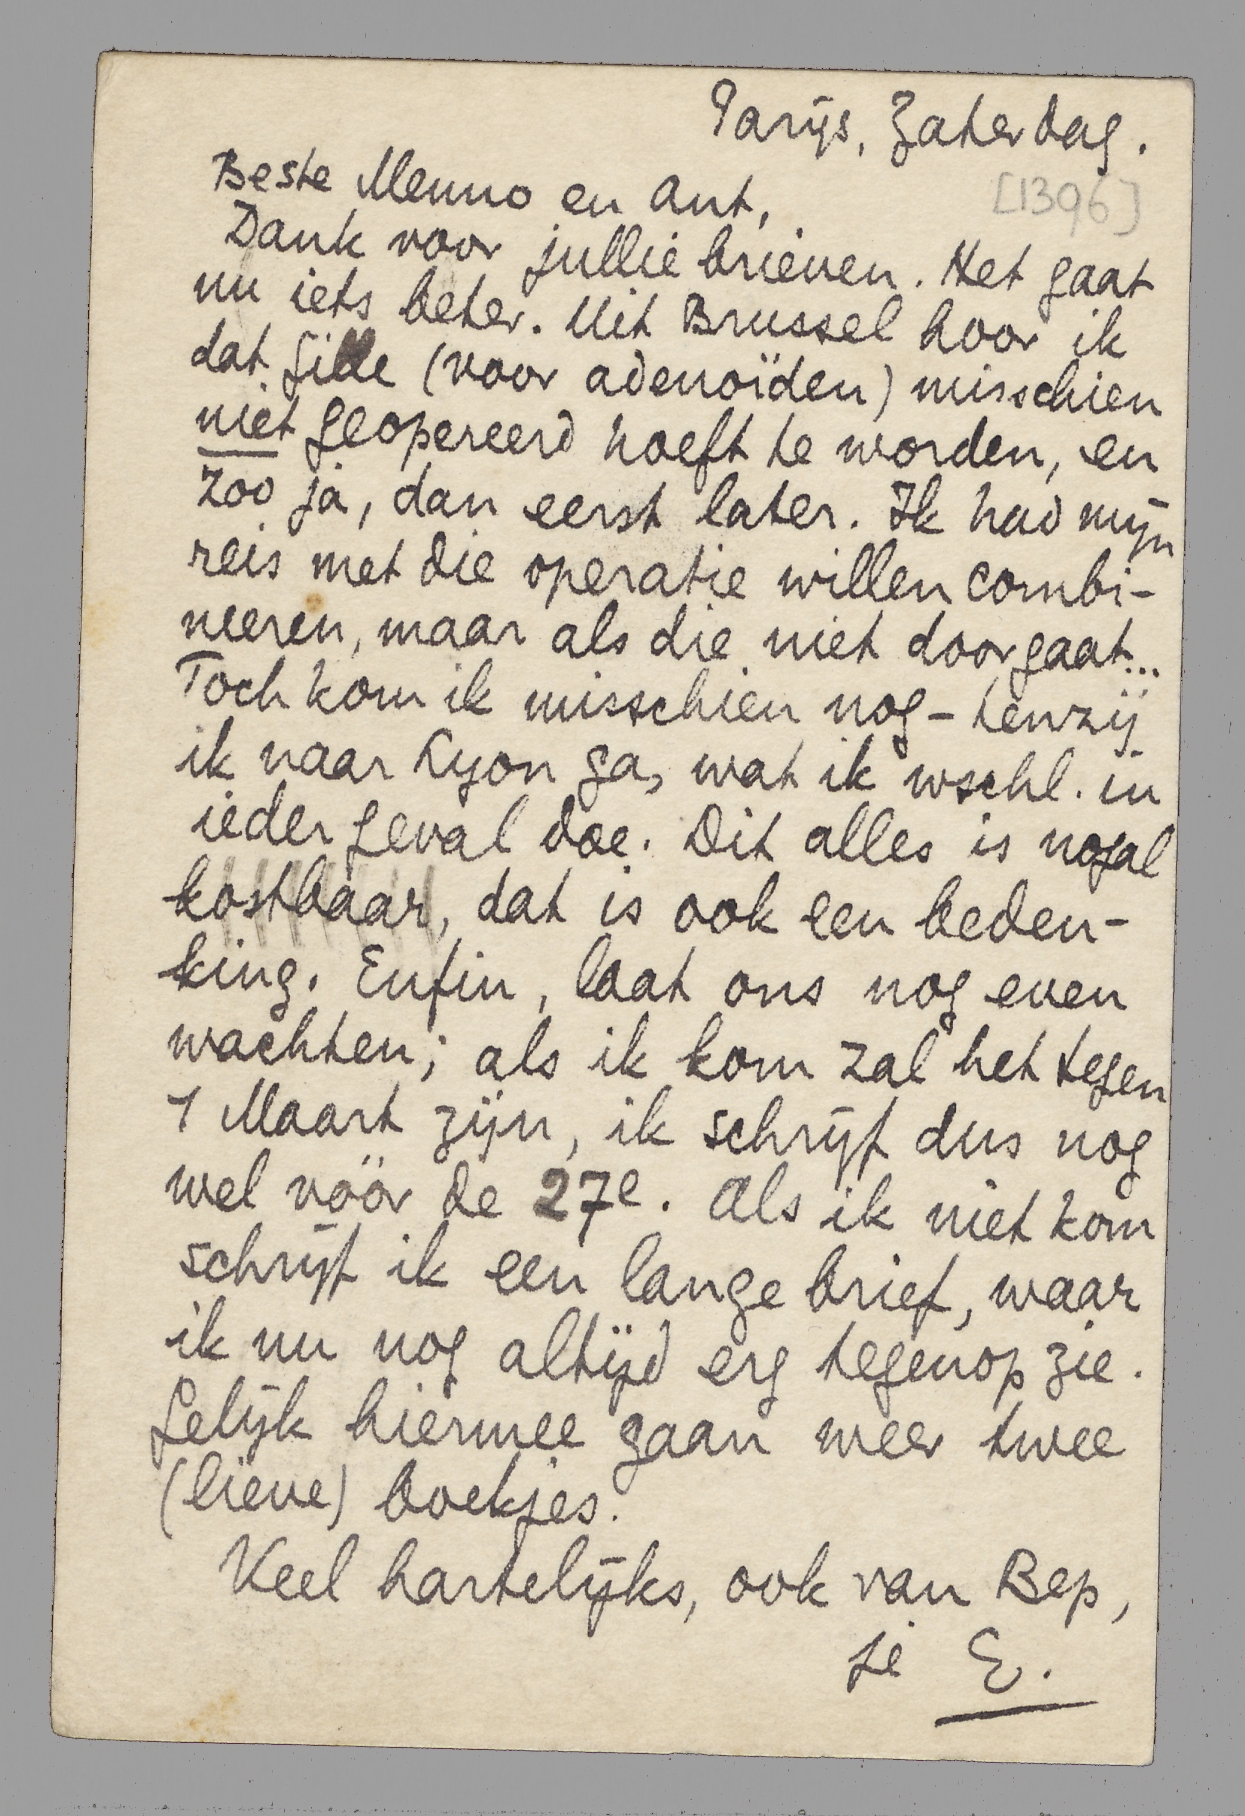 Parijs, Zaterdag.
[1396]
Beste Menno en Ant,
Dank voor jullie brieven. Het gaat
nu iets beter. Uit Brussel hoor ik
dat Gille (voor adenoïden) misschien
niet geopereerd hoeft te worden, en
zoo ja, dan eerst later. Ik had mijn
reis met die operatie willen combi-
neeren, maar als die niet doorgaat...
Toch kom ik misschien nog – tenzij
ik naar Lyon ga, wat ik wschl. in
ieder geval doe. Dit alles is nogal
kostbaar, dat is ook een beden-
king. Enfin, laat ons nog even
wachten; als ik kom zal het tegen
1 Maart zijn, ik schrijf dus nog
wel vóór de 27e. Als ik niet kom
schrijf ik een lange brief, waar
ik nu nog altijd erg tegenop zie.
Gelijk hiermee gaan weer twee
(lieve) boekjes.
Veel hartelijks, ook van Bep,
je E.